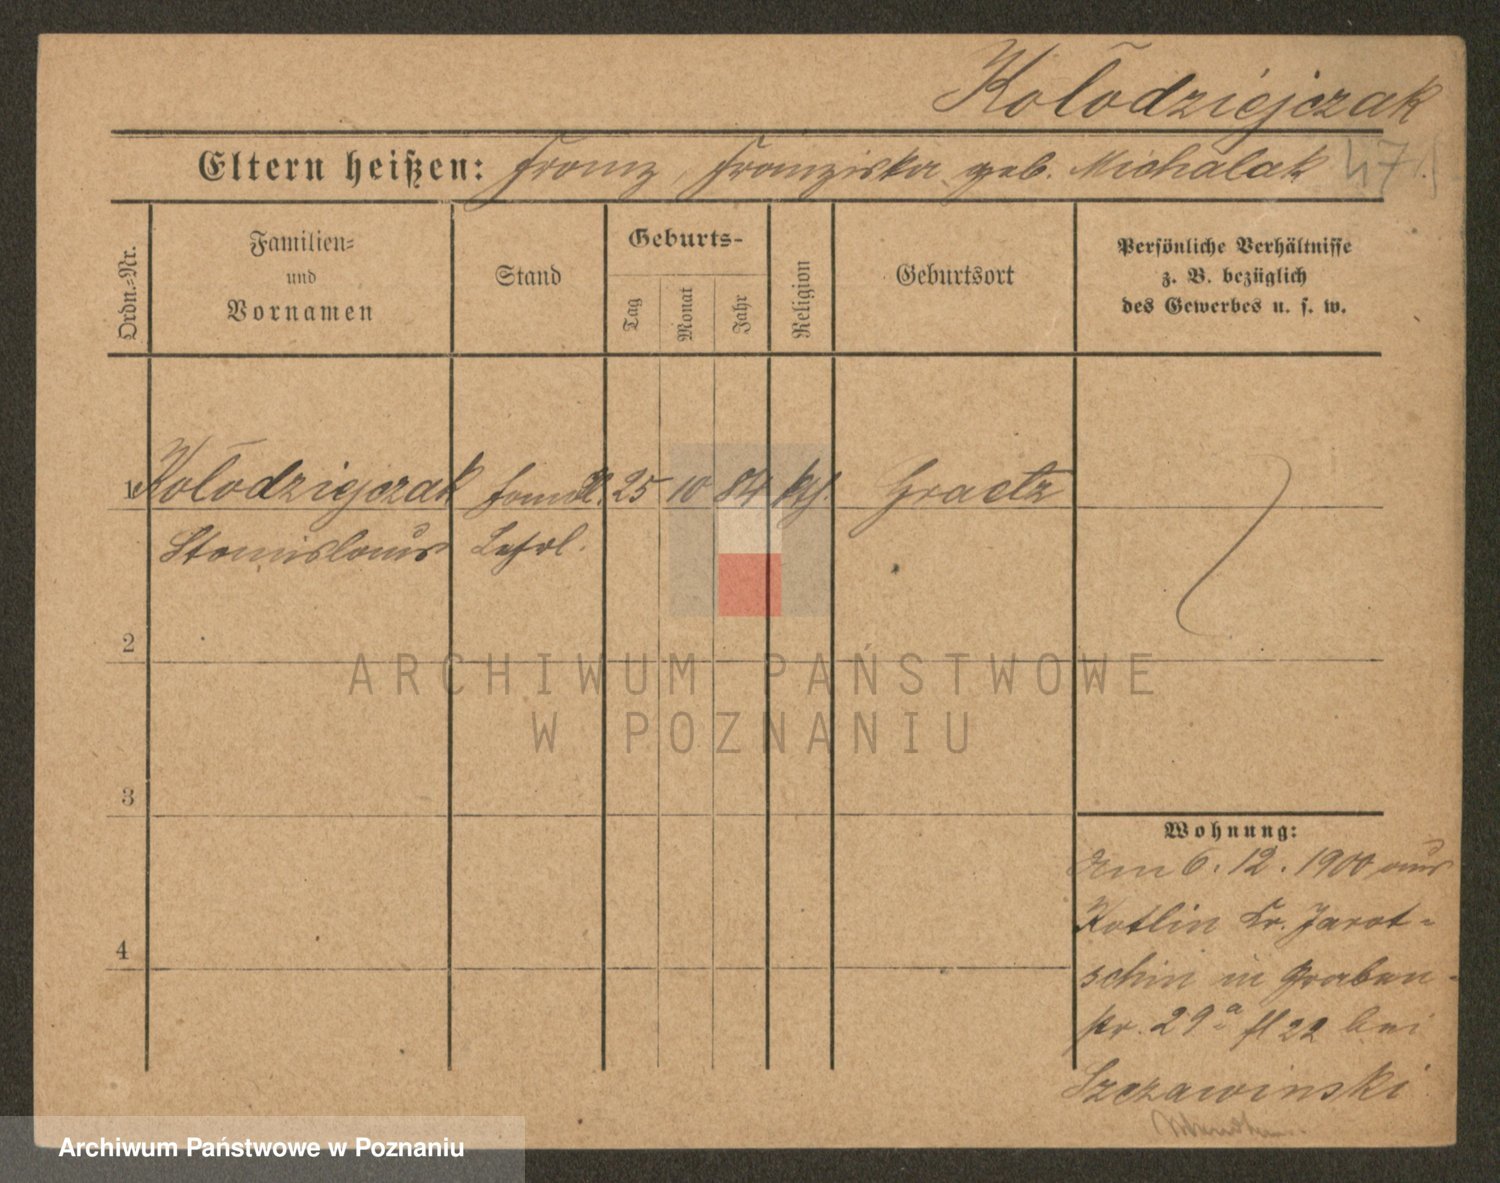 Kołodziejczak
Eltern heißen: Franz, Franziska geb. Michalak
471
Ordn.-Nr.
Familien-
und
Vornamen
Stand
Geburts-
Tag
Monat
Jahr
Religion
Geburtsort
Persönliche Verhältnisse
z. B. bezüglich
des Gewerbes u. s. w.
1 Kołodziejczak 25 10 84 kth. Graetz
Stanislaus
2
3
4
Wohnung:
Am 6. 12. 1900 aus
Kotlin Kr. Jarot-
schin in Graben-
str. 29a 22 bei
Szczawinski
ARCHIWUM PAŃSTWOWE
W POZNANIU
Archiwum Państwowe w Poznaniu